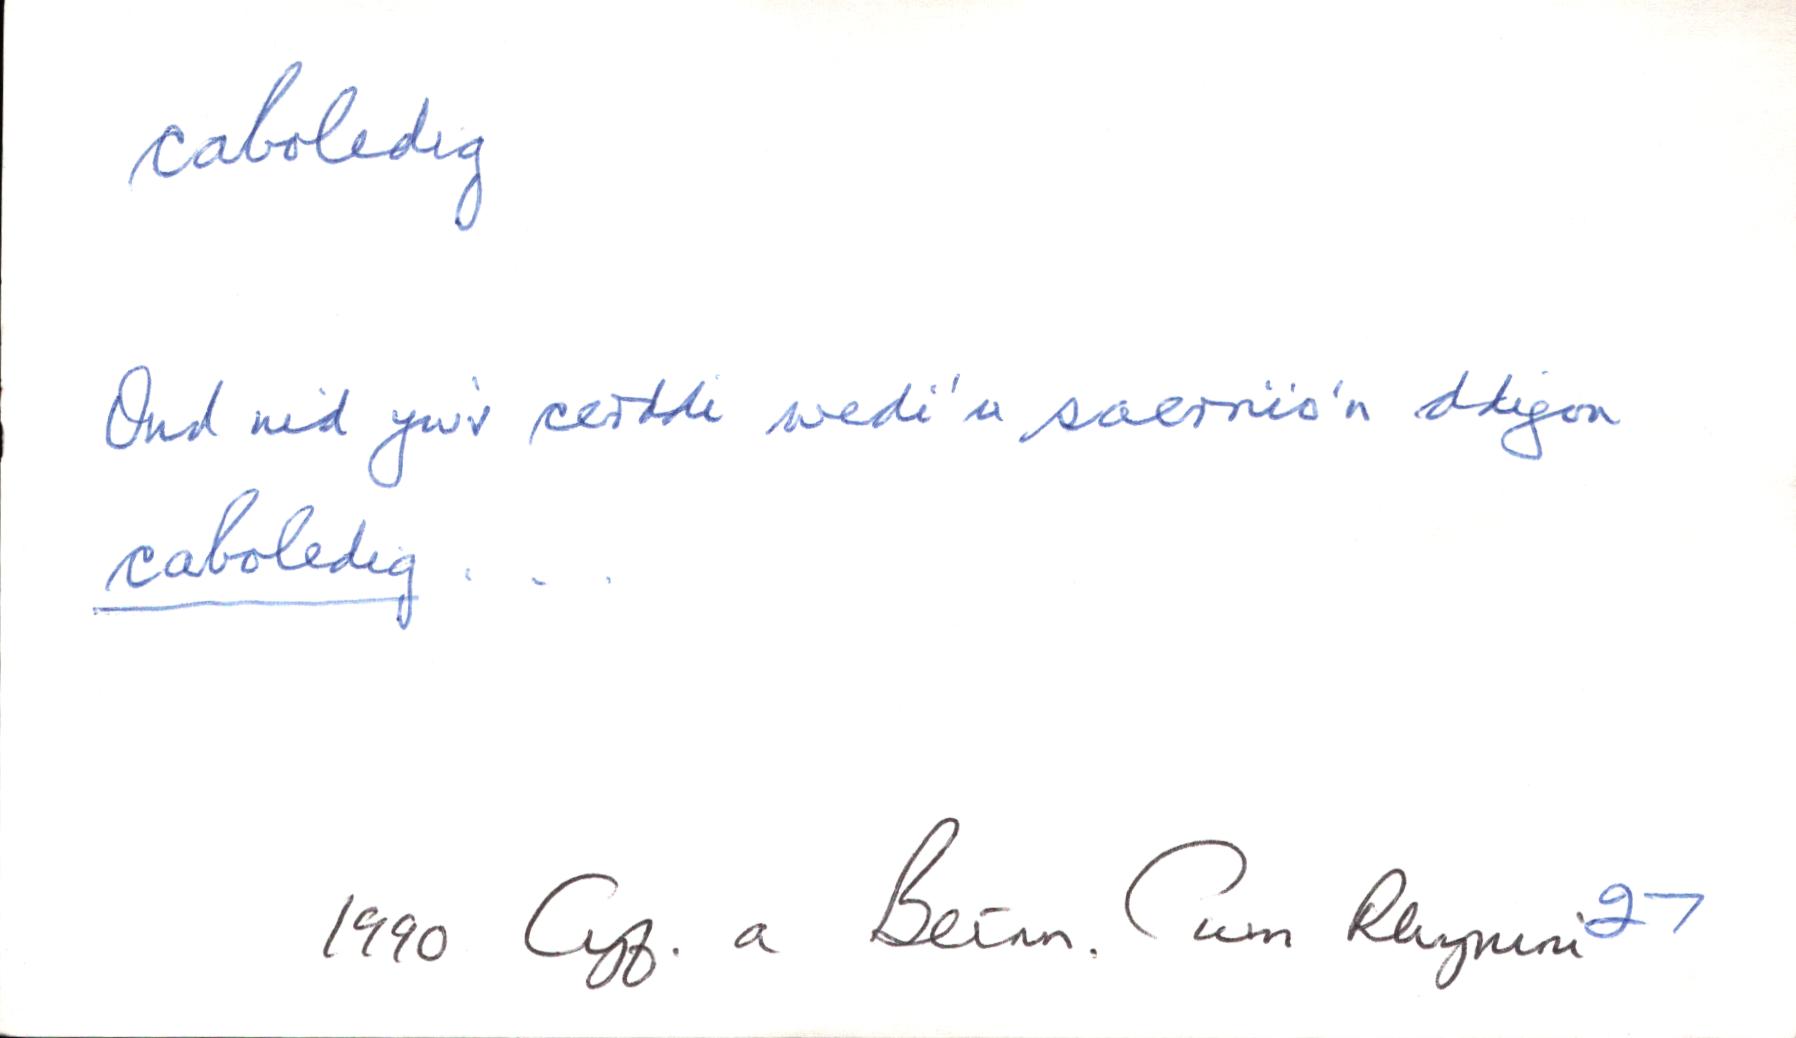 caboledig
Ond nid yw'r cerddi wedi'u saernïo'n ddigon
caboledig . . .
1990 Cyf. a Beirn. Cwm Rhymni 27